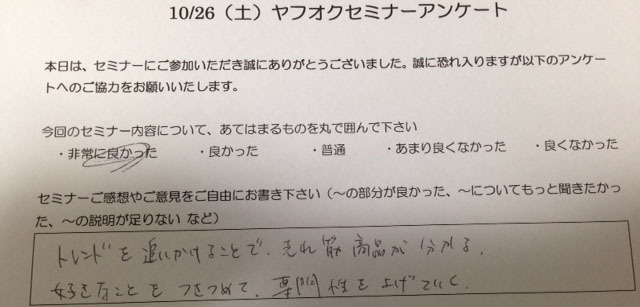 10/26（土）ヤフオクセミナーアンケート
本日は、セミナーにご参加いただき誠にありがとうございました。誠に恐れ入りますが以下のアンケー
トへのご協力をお願いいたします。
今回のセミナー内容について、あてはまるものを丸で囲んで下さい
・非常に良かった　・良かった　・普通　・あまり良くなかった　・良くなかった
セミナーご感想やご意見をご自由にお書き下さい（～の部分が良かった、～についてもっと聞きたかっ
た、～の説明が足りない など）
トレンドを追いかけることで、売れ筋商品が分かる。
好きなことをつきつめて、専門性を上げていく。